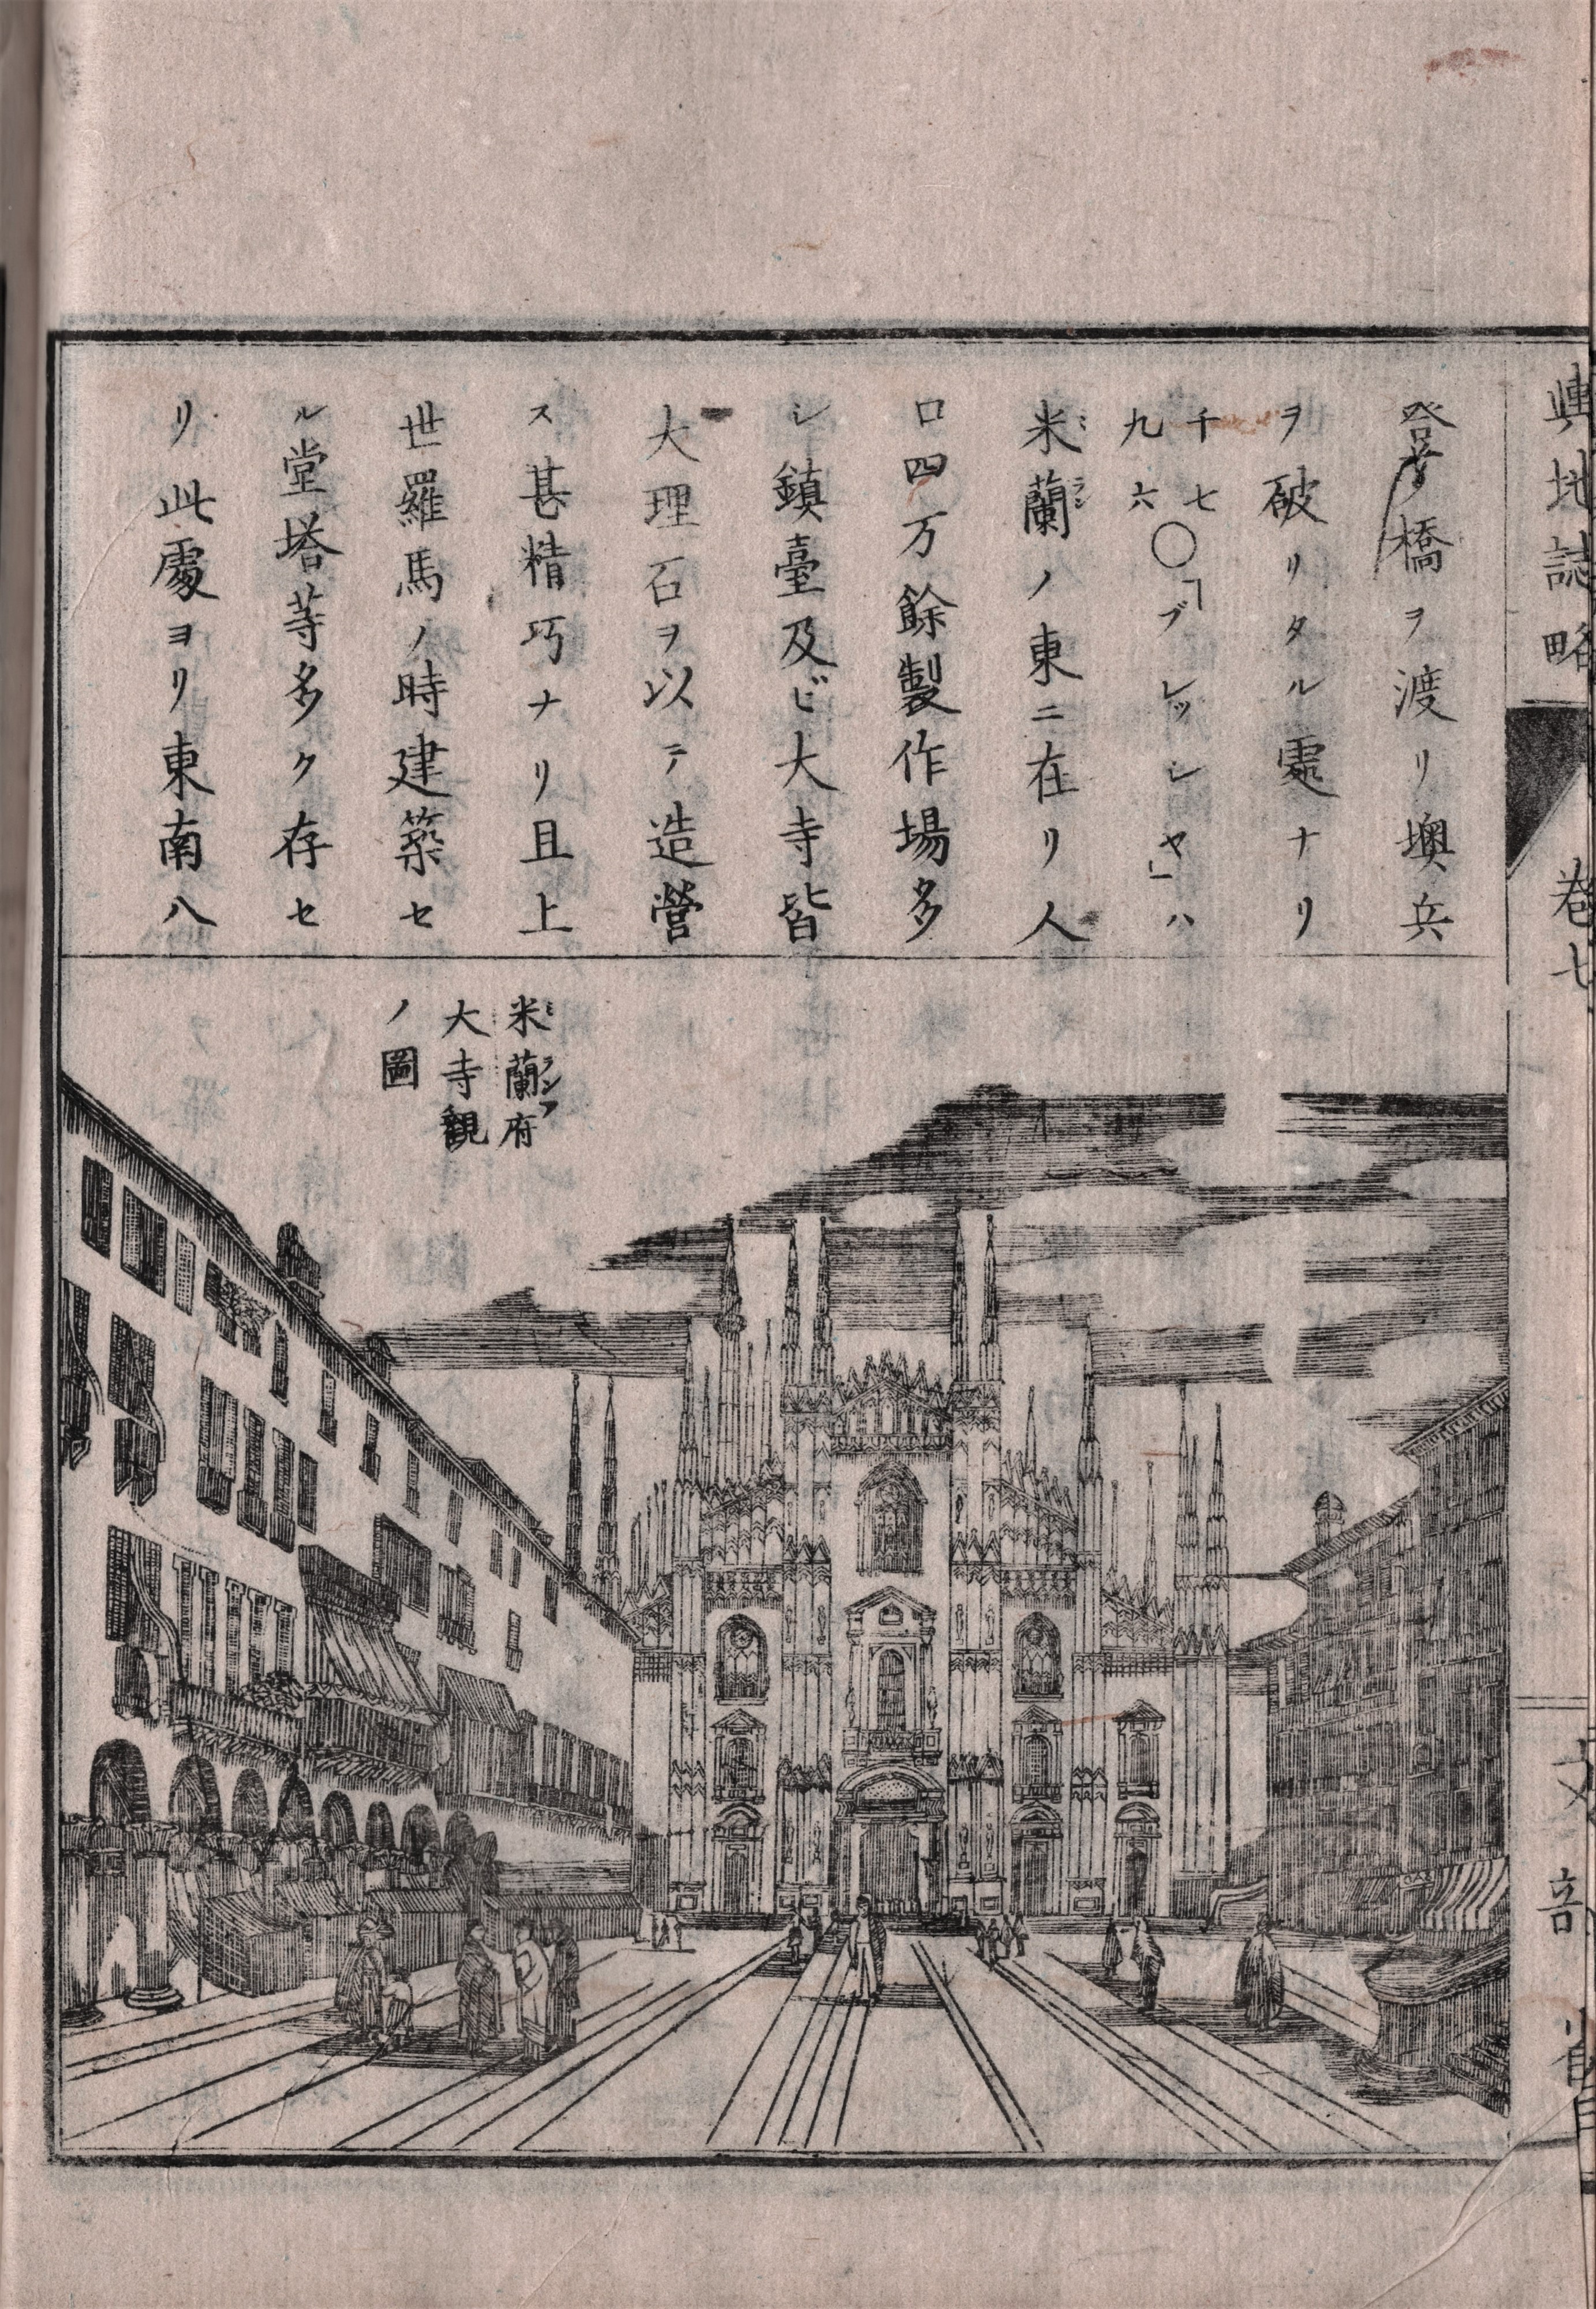 輿地誌略 卷七 文部省
橋ヲ渡リ墺兵
ヲ破リタル處ナリ
千七
九六
○「ブレッシヤ」ハ
米蘭ノ東ニ在リ人
口四万餘製作場多
シ鎮臺及ビ大寺皆
大理石ヲ以テ造營
ス甚精巧ナリ且上
世羅馬ノ時建築セ
ル堂塔等多ク存セ
リ此處ヨリ東南八
米蘭府
大寺観
ノ圖